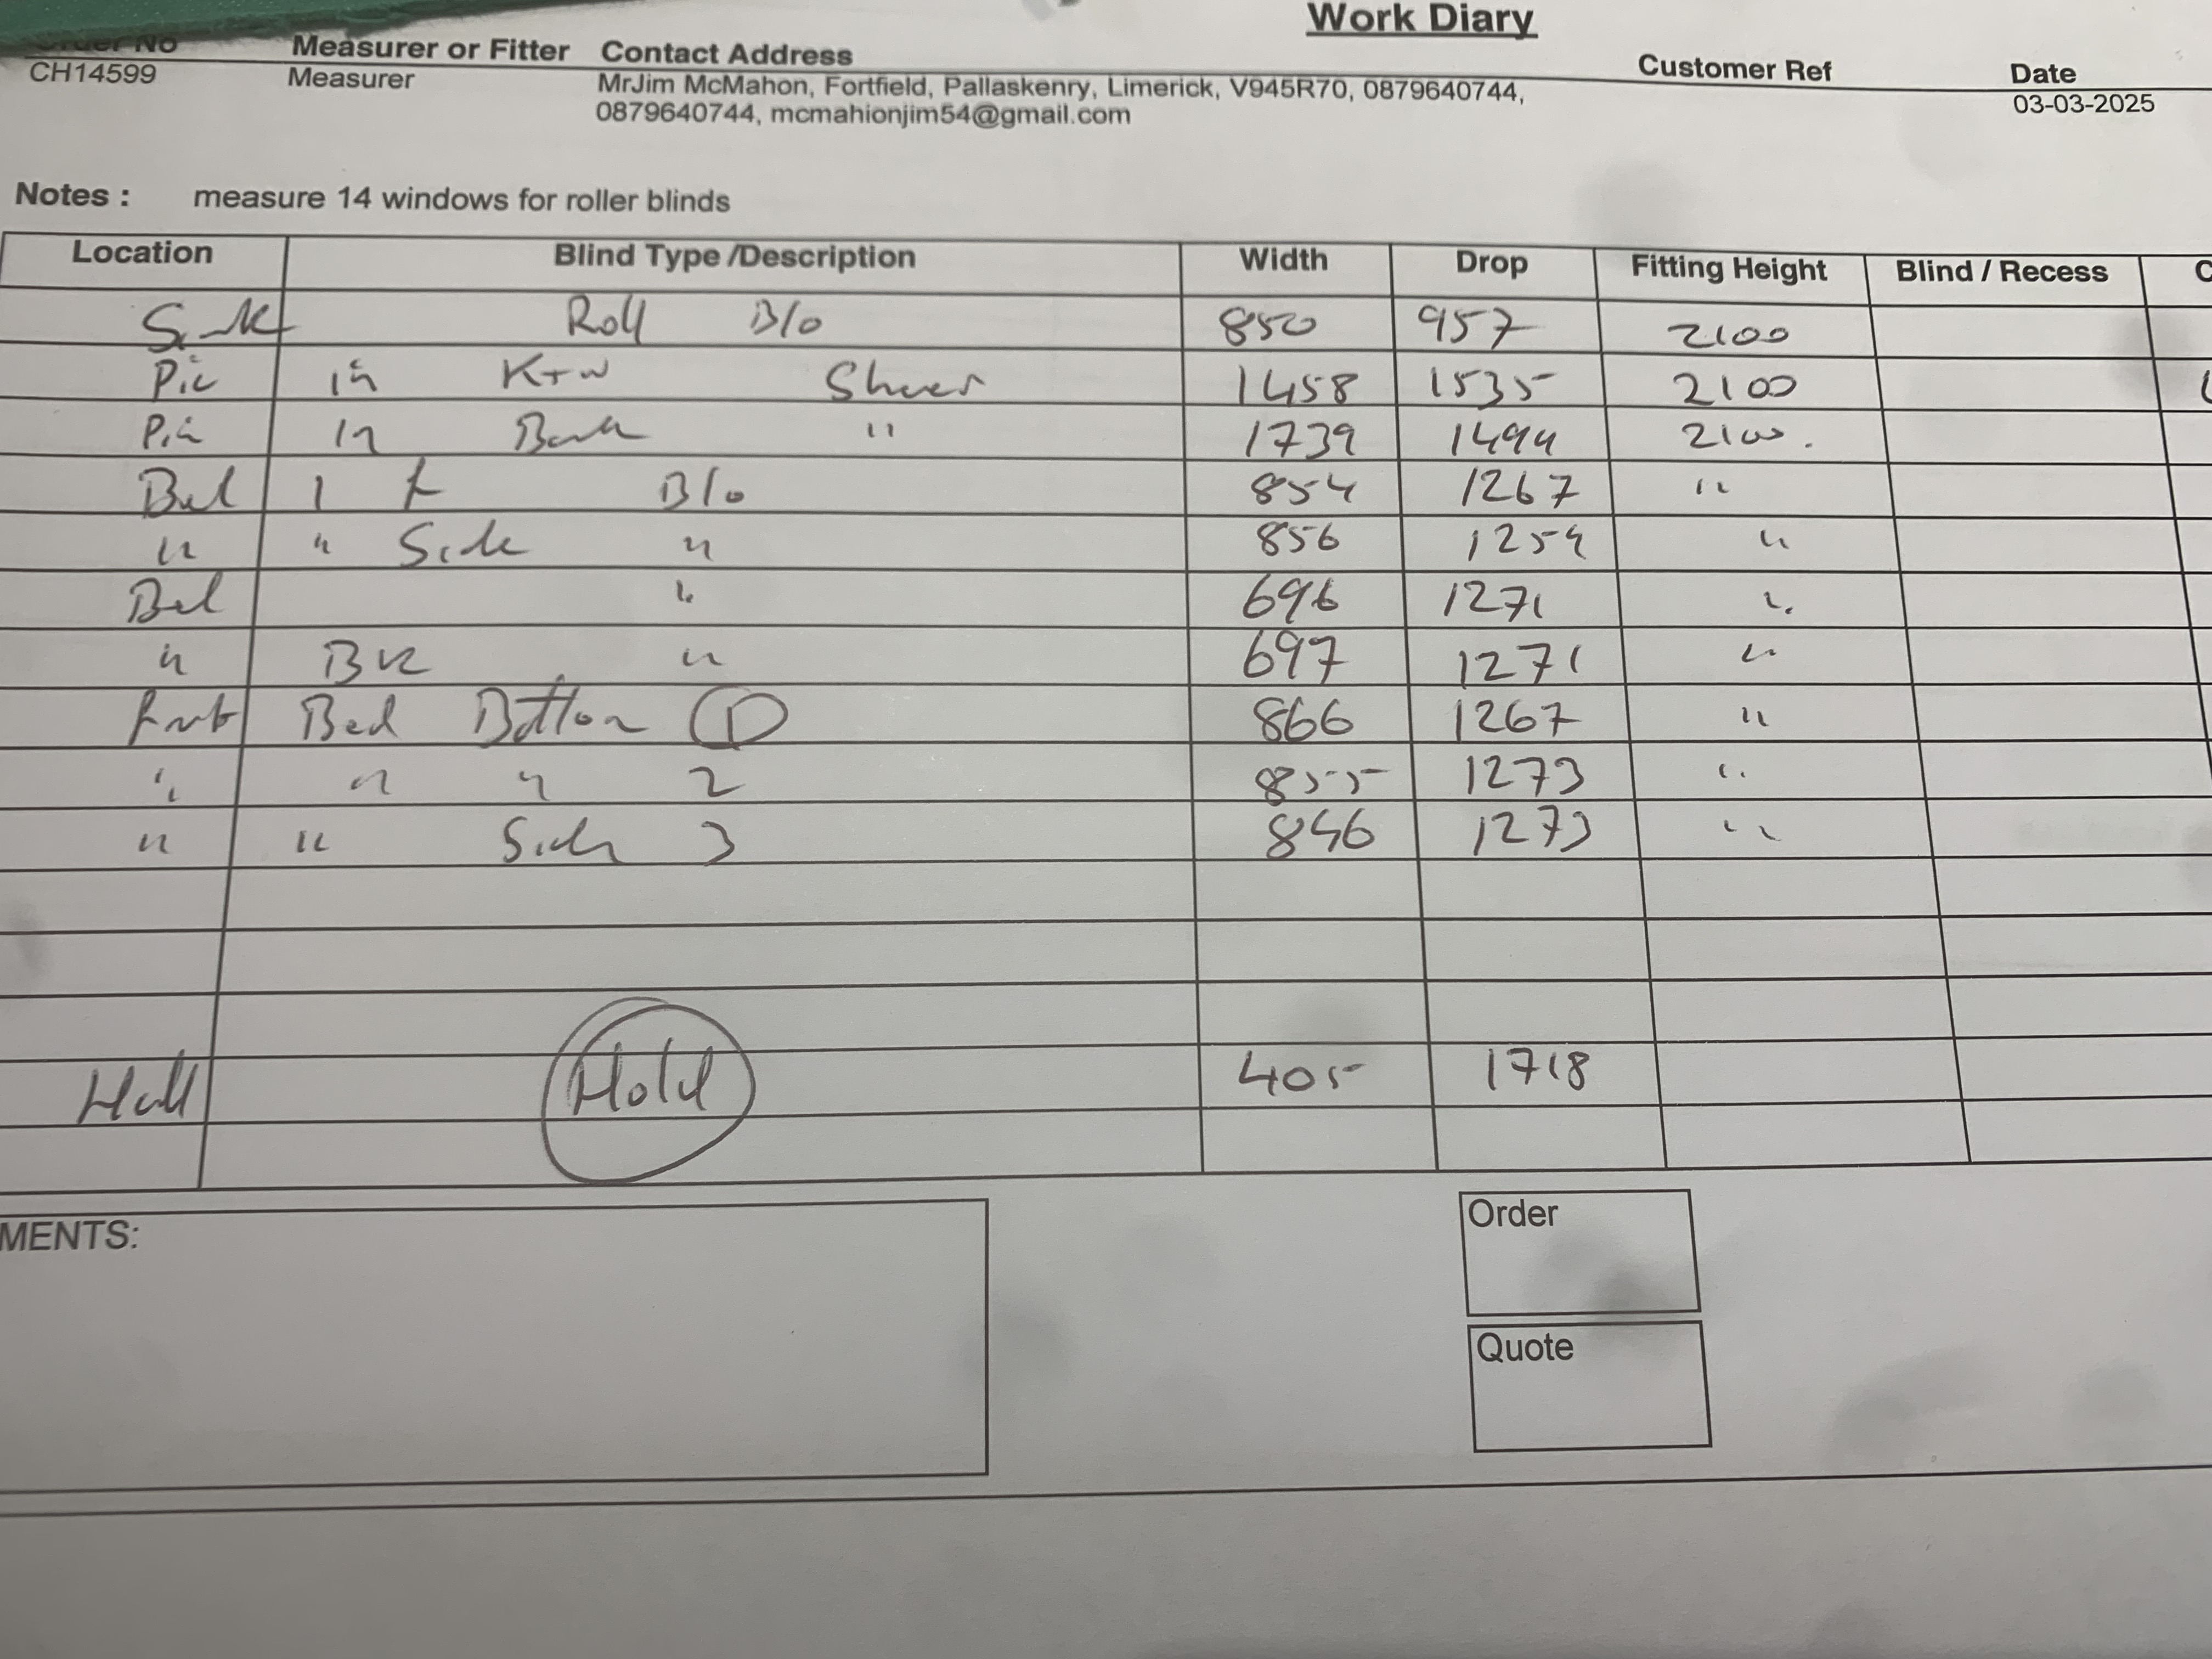 Work Diary
Order No Measurer or Fitter Contact Address Customer Ref Date
CH14599 Measurer MrJim McMahon, Fortfield, Pallaskenry, Limerick, V945R70, 0879640744, 03-03-2025
0879640744, mcmahionjim54@gmail.com
Notes : measure 14 windows for roller blinds
Location Blind Type /Description Width Drop Fitting Height Blind / Recess C
Sink Roll B/o 850 957 2100
Pic in Sheer 1458 1535 2100
Pic in " 1739 1494 2100.
Bed 1 B/o 854 1267 "
" " Side " 856 1254 "
Bed " 696 1271 "
" " 697 1271 "
Frnt Bed Bottom 1 866 1267 "
" " " 2 855 1273 "
" " Side 3 846 1273 "
Hall Hold 405 1718
MENTS:
Order
Quote